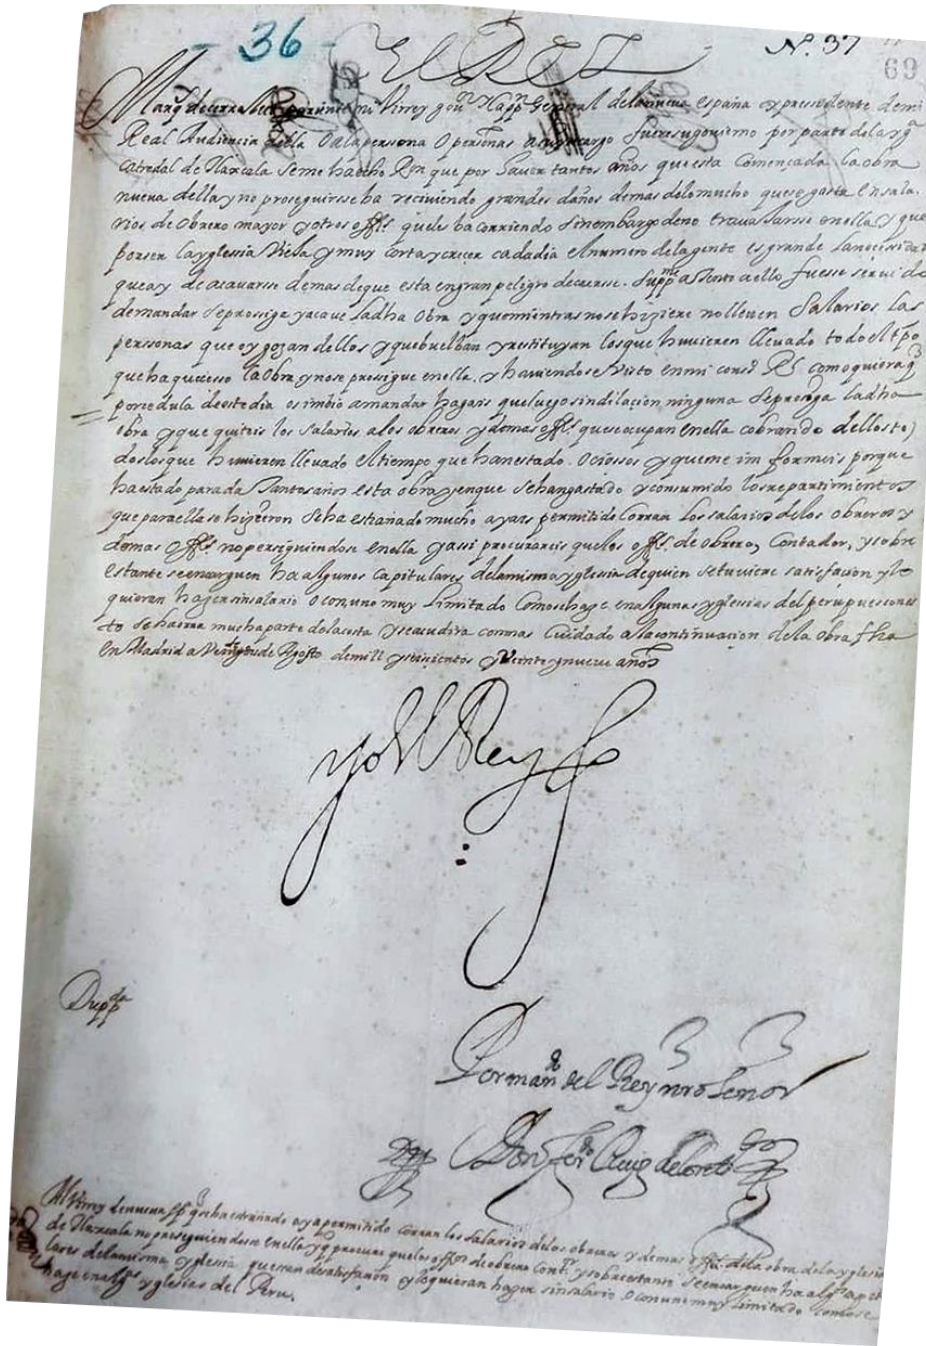 36
N. 37
69
El Rey
Marq de cerralvo pariente mi Virrey gou.or Y capp. General de la nueva españa y presidente de mi
Real Audiencia della O a la persona O personas a cuyo cargo fuere su gouierno por parte de la ygª
catedral de tlaxcala se me ha hecho Ron que por hauer tantos años que esta començada la obra
nueva della y no proseguirse ha reciuiendo grandes daños demas de lo mucho que se gasta en sala
rios de obrero mayor y otros offs. que les ha corriendo sin embargo de no trauaxarse en ella y que
por ser la yglesia Vieja y muy corta y crecer cada dia el numero de la gente es grande la necesidad
que ay de acauarse demas de que esta en gran peligro de caerse. Suppme a tento a ello fuesse seruido
de mandar se prossiga y acaue la dha Obra y que mientras no se hiziere no lleuen Salarios las
perssonas que oy gozan dellos y que buelban y restituyan los que huuieren lleuado todo el tpo
que ha que cesso la obra y no se prosigue en ella. y hauiendose Visto en mi conso Rl como quiera q
por cedula de este dia os imbio a mandar hagais que luego sin dilacion ninguna se prosiga la dha
obra y que quiteis los salarios a los obreros y demas offs. que se ocupan en ella cobrando dellos to
dos los que huuieren lleuado el tiempo que han estado. Ociossos y que me imformeis porque
ha estado parada tantos años esta obra y en que se han gastado y consumido los repartimientos
que para ella se hizieron se ha estrañado mucho ayais permitido corran los salarios de los obreros y
demas offs. no persiguiendose en ella y assi procurareis que los offs. de obrero, Contador, y sobre
estante se encarguen ha algunos capitulares de la misma yglesia de quien se tuuiere satisfacion y lo
quieran hazer sin salario O con uno muy limitado Como se haze en algunas yglesias del peru pues con es
to se haorra mucha parte de la costa y se acudira con mas Cuidado a la continuacion de la obra fha
en Madrid a Veinte y de Agosto de mill y seiscientos y Veinte y nueue años
yo el Rey
Duppda
Por mando del Rey nro señor
Don ferdo Ruiz de Contreras
Al Virrey de nueva spª q se ha estrañado aya permitido corran los salarios de los obreros y demas offs. de la obra de la yglesia
de tlaxcala no persiguiendose en ella y q procure que los offos de obrero Contor y sobrestante se encarguen ha algs capitu
lares de la misma yglesia quesean de satisfacion y lo quieran hazer sin salario O con uno muy limitado como se
haze en algs yglesias del Peru.